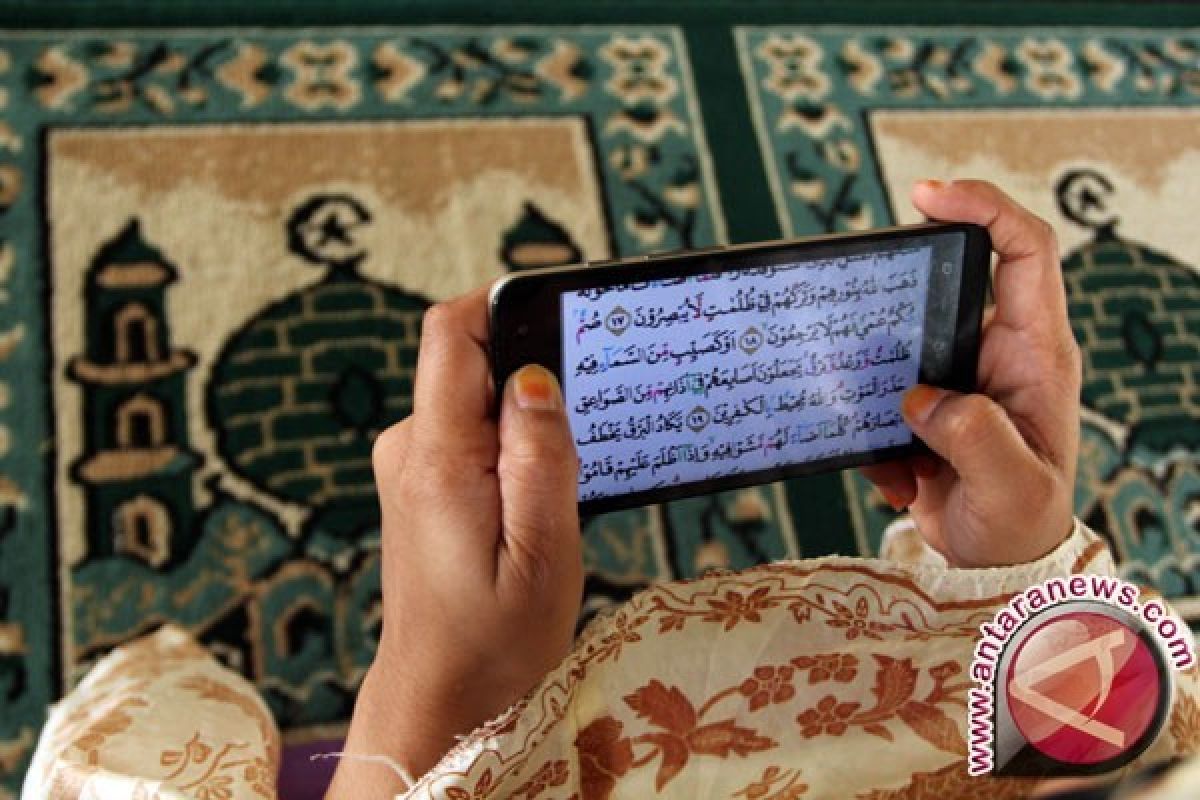 ذَهَبَ ٱللَّهُ بِنُورِهِمْ وَتَرَكَهُمْ فِي ظُلُمَٰتٍ لَّا يُبْصِرُونَ ١٧ صُمٌّ
بُكْمٌ عُمْيٌ فَهُمْ لَا يَرْجِعُونَ ١٨ أَوْ كَصَيِّبٍ مِّنَ ٱلسَّمَآءِ فِيهِ
ظُلُمَٰتٌ وَرَعْدٌ وَبَرْقٌ يَجْعَلُونَ أَصَٰبِعَهُمْ فِيٓ ءَاذَانِهِم مِّنَ ٱلصَّوَٰعِقِ
حَذَرَ ٱلْمَوْتِ وَٱللَّهُ مُحِيطٌۢ بِٱلْكَٰفِرِينَ ١٩ يَكَادُ ٱلْبَرْقُ يَخْطَفُ
أَبْصَٰرَهُمْ كُلَّمَآ أَضَآءَ لَهُم مَّشَوْا۟ فِيهِ وَإِذَآ أَظْلَمَ عَلَيْهِمْ قَامُوا۟
www.antaranews.com